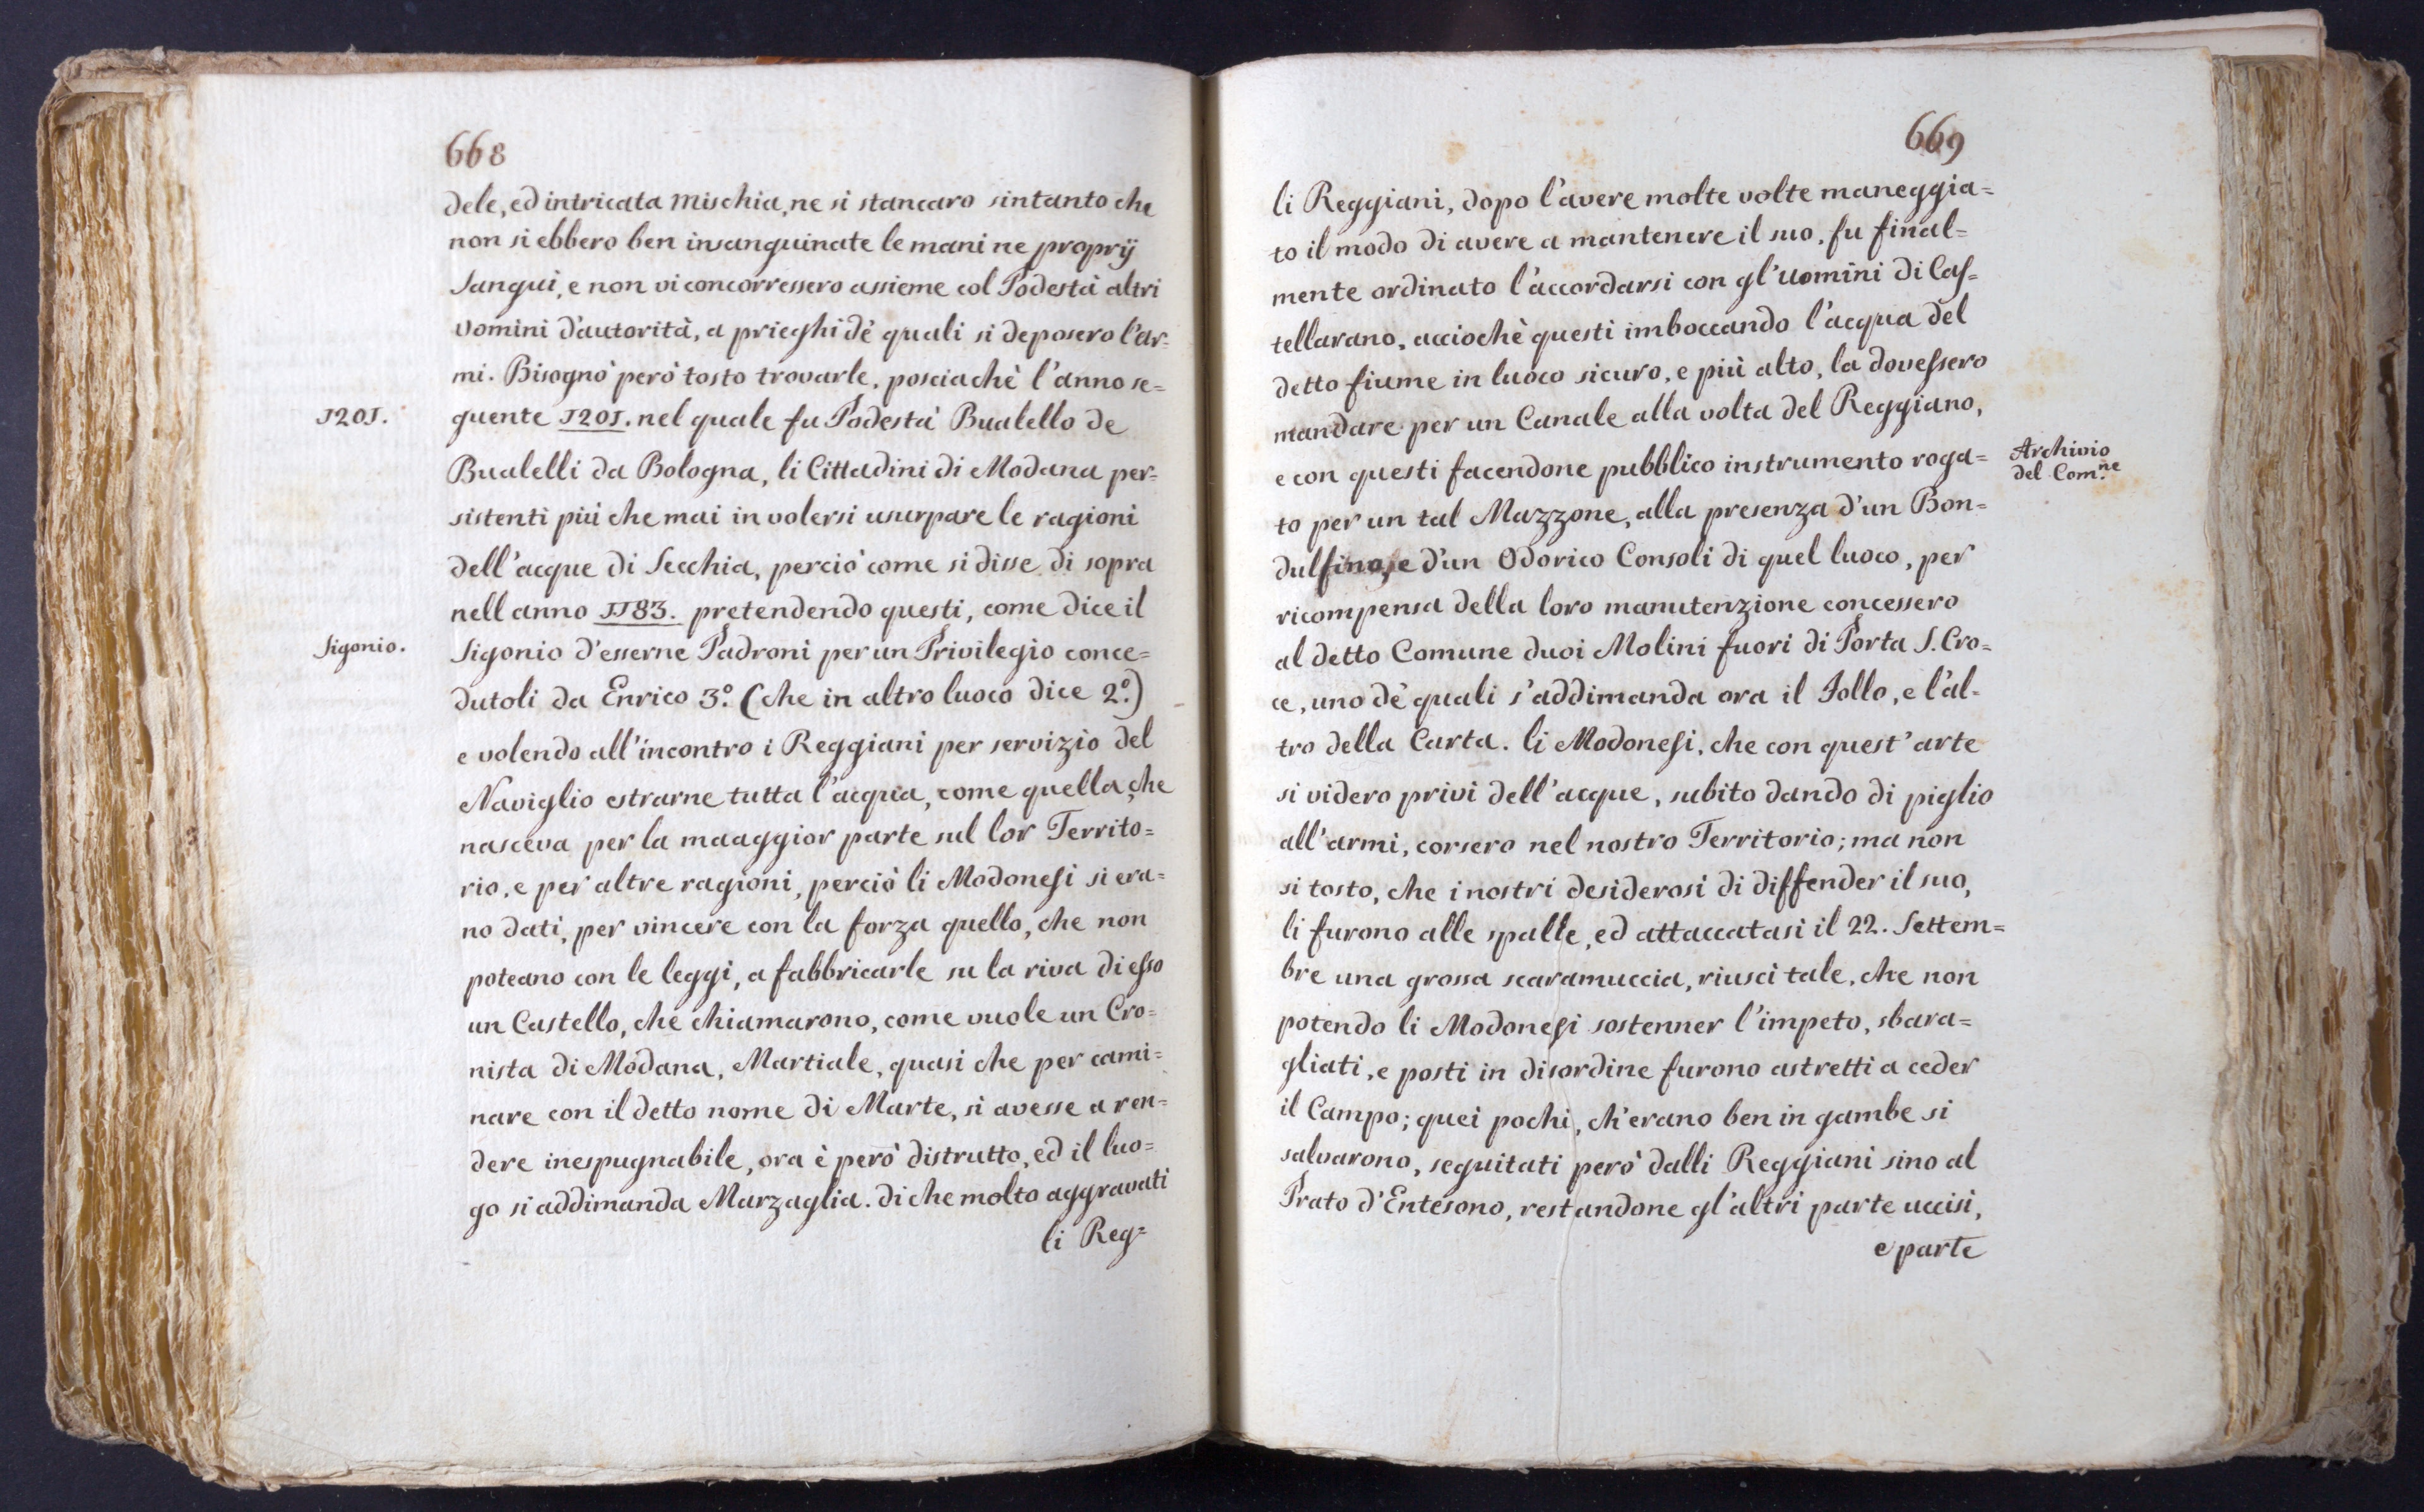 668
dele, ed intricata mischia, ne si stancaro sintanto che
non si ebbero ben insanguinate le mani ne proprij
sangui, e non vi concorressero assieme col Podestà altri
uomini d'autorità, a prieghi de' quali si deposero l'ar=
mi. Bisognò però tosto trovarle, posciachè l'anno se=
1201.
guente 1201. nel quale fu Podestà Bualello de
Bualelli da Bologna, li Cittadini di Modana per=
sistenti più che mai in volersi usurpare le ragioni
dell'acque di Secchia, perciò come si disse di sopra
nell anno 1183. pretendendo questi, come dice il
Sigonio.
Sigonio d'esserne Padroni per un Privilegio conce=
dutoli da Enrico 3.º (che in altro luoco dice 2.º)
e volendo all'incontro i Reggiani per servizio del
Naviglio estrarne tutta l'acqua, come quella che
nasceva per la maaggior parte sul lor Territo=
rio, e per altre ragioni, perciò li Modonesi si era=
no dati, per vincere con la forza quello, che non
poteano con le leggi, a fabbricarle su la riva di esso
un Castello, che chiamarono, come vuole un Cro=
nista di Modana, Martiale, quasi che per cami=
nare con il detto nome di Marte, si avesse a ren=
dere inespugnabile, ora è però distrutto, ed il luo=
go si addimanda Marzaglia. di che molto aggravati
li Reg=
669
li Reggiani, dopo l'avere molte volte maneggia=
to il modo di avere a mantenere il suo, fu final=
mente ordinato l'accordarsi con gl'uomini di Cas=
tellarano, acciochè questi imboccando l'acqua del
detto fiume in luoco sicuro, e più alto, la dovessero
mandare per un Canale alla volta del Reggiano,
e con questi facendone pubblico instrumento roga=
Archivio
del Com.ne
to per un tal Mazzone, alla presenza d'un Bon=
dulfino, e d'un Odorico Consoli di quel luoco, per
ricompensa della loro manutenzione concessero
al detto Comune duoi Molini fuori di Porta S. Cro=
ce, uno de' quali s'addimanda ora il Follo, e l'al=
tro della Carta. li Modonesi, che con quest'arte
si videro privi dell'acque, subito dando di piglio
all'armi, corsero nel nostro Territorio; ma non
si tosto, che i nostri desiderosi di diffender il suo,
li furono alle spalle, ed attaccatasi il 22. Settem=
bre una grossa scaramuccia, riuscì tale, che non
potendo li Modonesi sostenner l'impeto, sbara=
gliati, e posti in disordine furono astretti a ceder
il Campo; quei pochi, ch'erano ben in gambe si
salvarono, seguitati però dalli Reggiani sino al
Prato d'Entesono, restandone gl'altri parte uccisi,
e parte